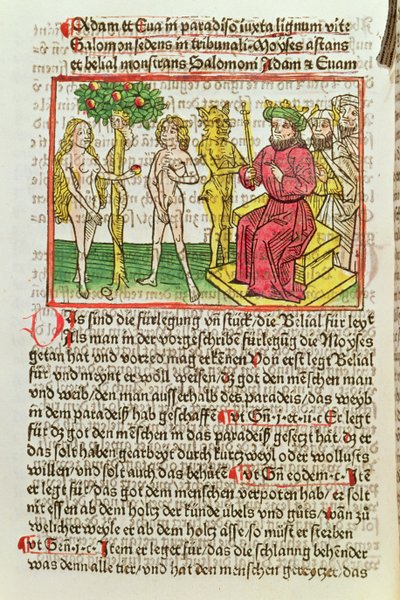 Adam et Eua in paradiso iuxta lignum vite
Salomon sedens in tribunali · Moyses astans
et belial monstrans Salomoni Adam & Euam
DIs sind die fürlegung vñ stuck / die Belial für leyt
Als man in der vorgeschribẽ fürlegũg die Moyses
getan hat vnd vorred mag erkẽnen Von erst legt Belial
für / vnd meynt er wöll weisen / dz got den mẽschen man
und weib / den man ausserhalb des paradeis / das weyb
in dem paradeiß hab geschaffẽ Vt Gñ · j · et · ij · c Er legt
für dz got den mẽschen in das paradeiß gesetzt hat · dz er
das solt haben gearbeyt durch kurtzweyl oder wollusts
willen / vnd solt auch das behütẽ Vt Gñ eodem · c · Itẽ
er legt für / das got dem menschen verpoten hab / er solt
nit essen ab dem holtz der künde übels vnd gůts / wañ zů
welicher weyle er ab dem holtz ässe / so můst er sterben
Vt Gẽñ · j · c · Item er leget für / das die schlanng behender
was denn alle tier / vnd hat den menschen gereytzet / das